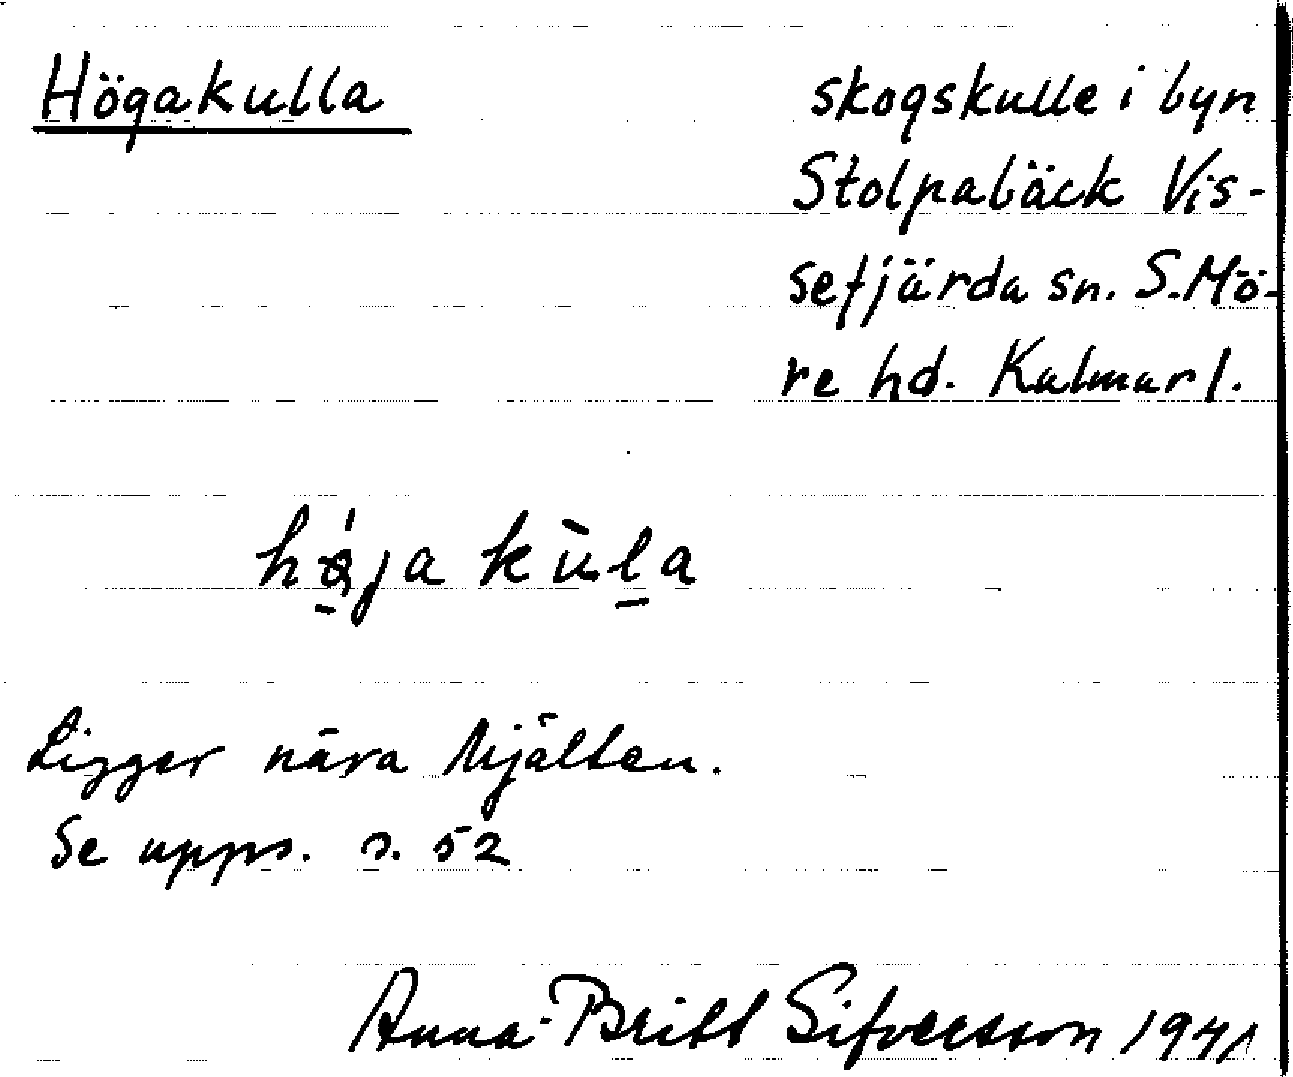 Högakulla
skogskulle i byn
Stolpabäck Vis-
sefjärda sn. S. Mö-
re hd. Kalmar l.
Ligger nära Mjälten.
Se upps. s. 52
Anna-Britt Sifversson 1941